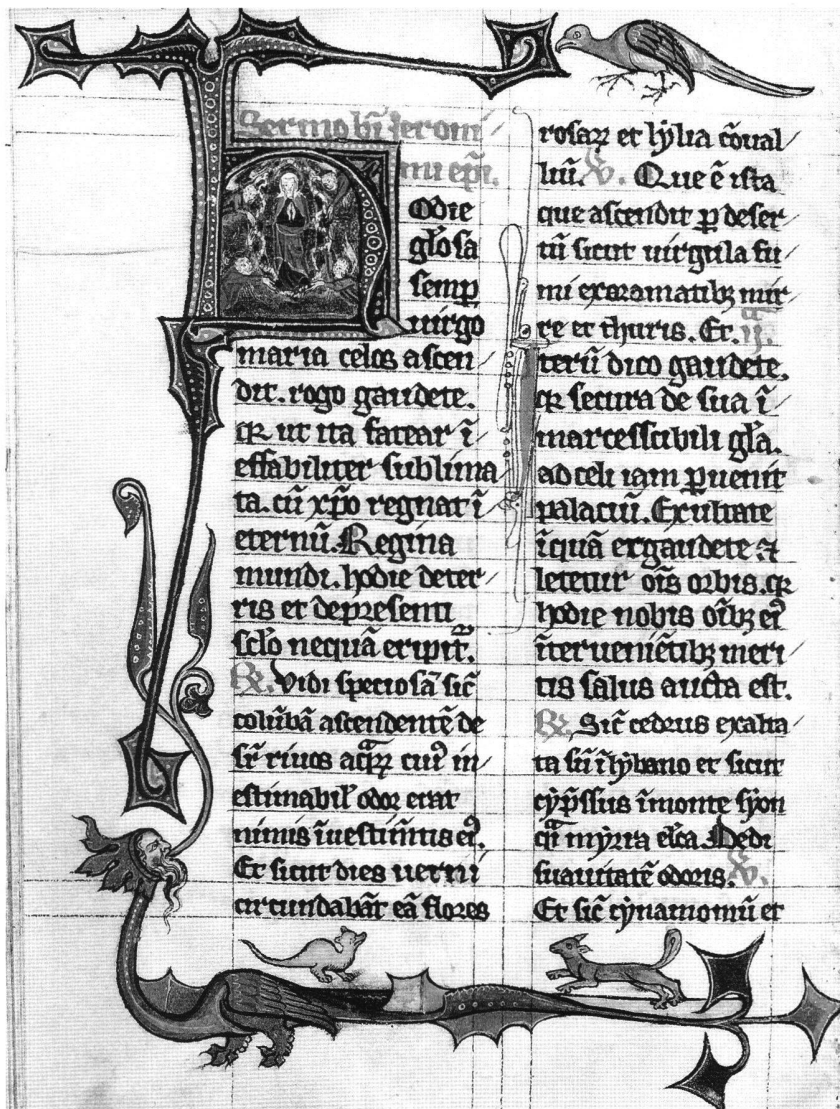 Sermo bi̅ Jeroni
mi ep̅i.
Hodie
gl̅osa
semp̲
uirgo
maria celos ascen
dit. rogo gaudete.
qꝛ ut ita fatear i̅
effabiliter sublima
ta. cu̅ xp̅o regnat i̅
eternu̅. Regina
mundi. hodie deter
ris et depresenti
sclo̅ nequa̅ eripit᷑.
℞. Vidi speciosa̅ sic̅
colu̅ba̅ ascendente̅ de
sr̅ riuos aqꝝ cuiꝰ in
estimabil̛ odor erat
nimis i̅uestim̅tis eiꝰ.
Et sicut dies uerni
circundaba̅t ea̅ flores
rosaꝝ et lẏlia co̅ual
liu̅. ℣. Que e̅ ista
que ascendit ꝑ deser
tu̅ sicut uirgula fu
mi exaromatibꝫ mir
re et thuris. Et.
teru̅ dico gaudete.
qꝛ secura de sua i̅
marcessibili gl̅a.
ad celi iam ꝑuenit
palaciu̅. Exultate
i̅qua̅ ergaudete ⁊
letetur oi̅s orbis. qꝛ
hodie nobis oi̅bꝫ eiꝰ
i̅teruenie̅tibꝫ meri
tis salus aucta est.
℞. Sic̅ cedrus exalta
ta su̅ i̅ lẏbano et sicut
cẏp̅ssus i̅monte sẏon
q̅i mẏrra el̅ca. Dedi
suauitate̅ odoris. ℣.
Et sic̅ cẏnamomu̅ et